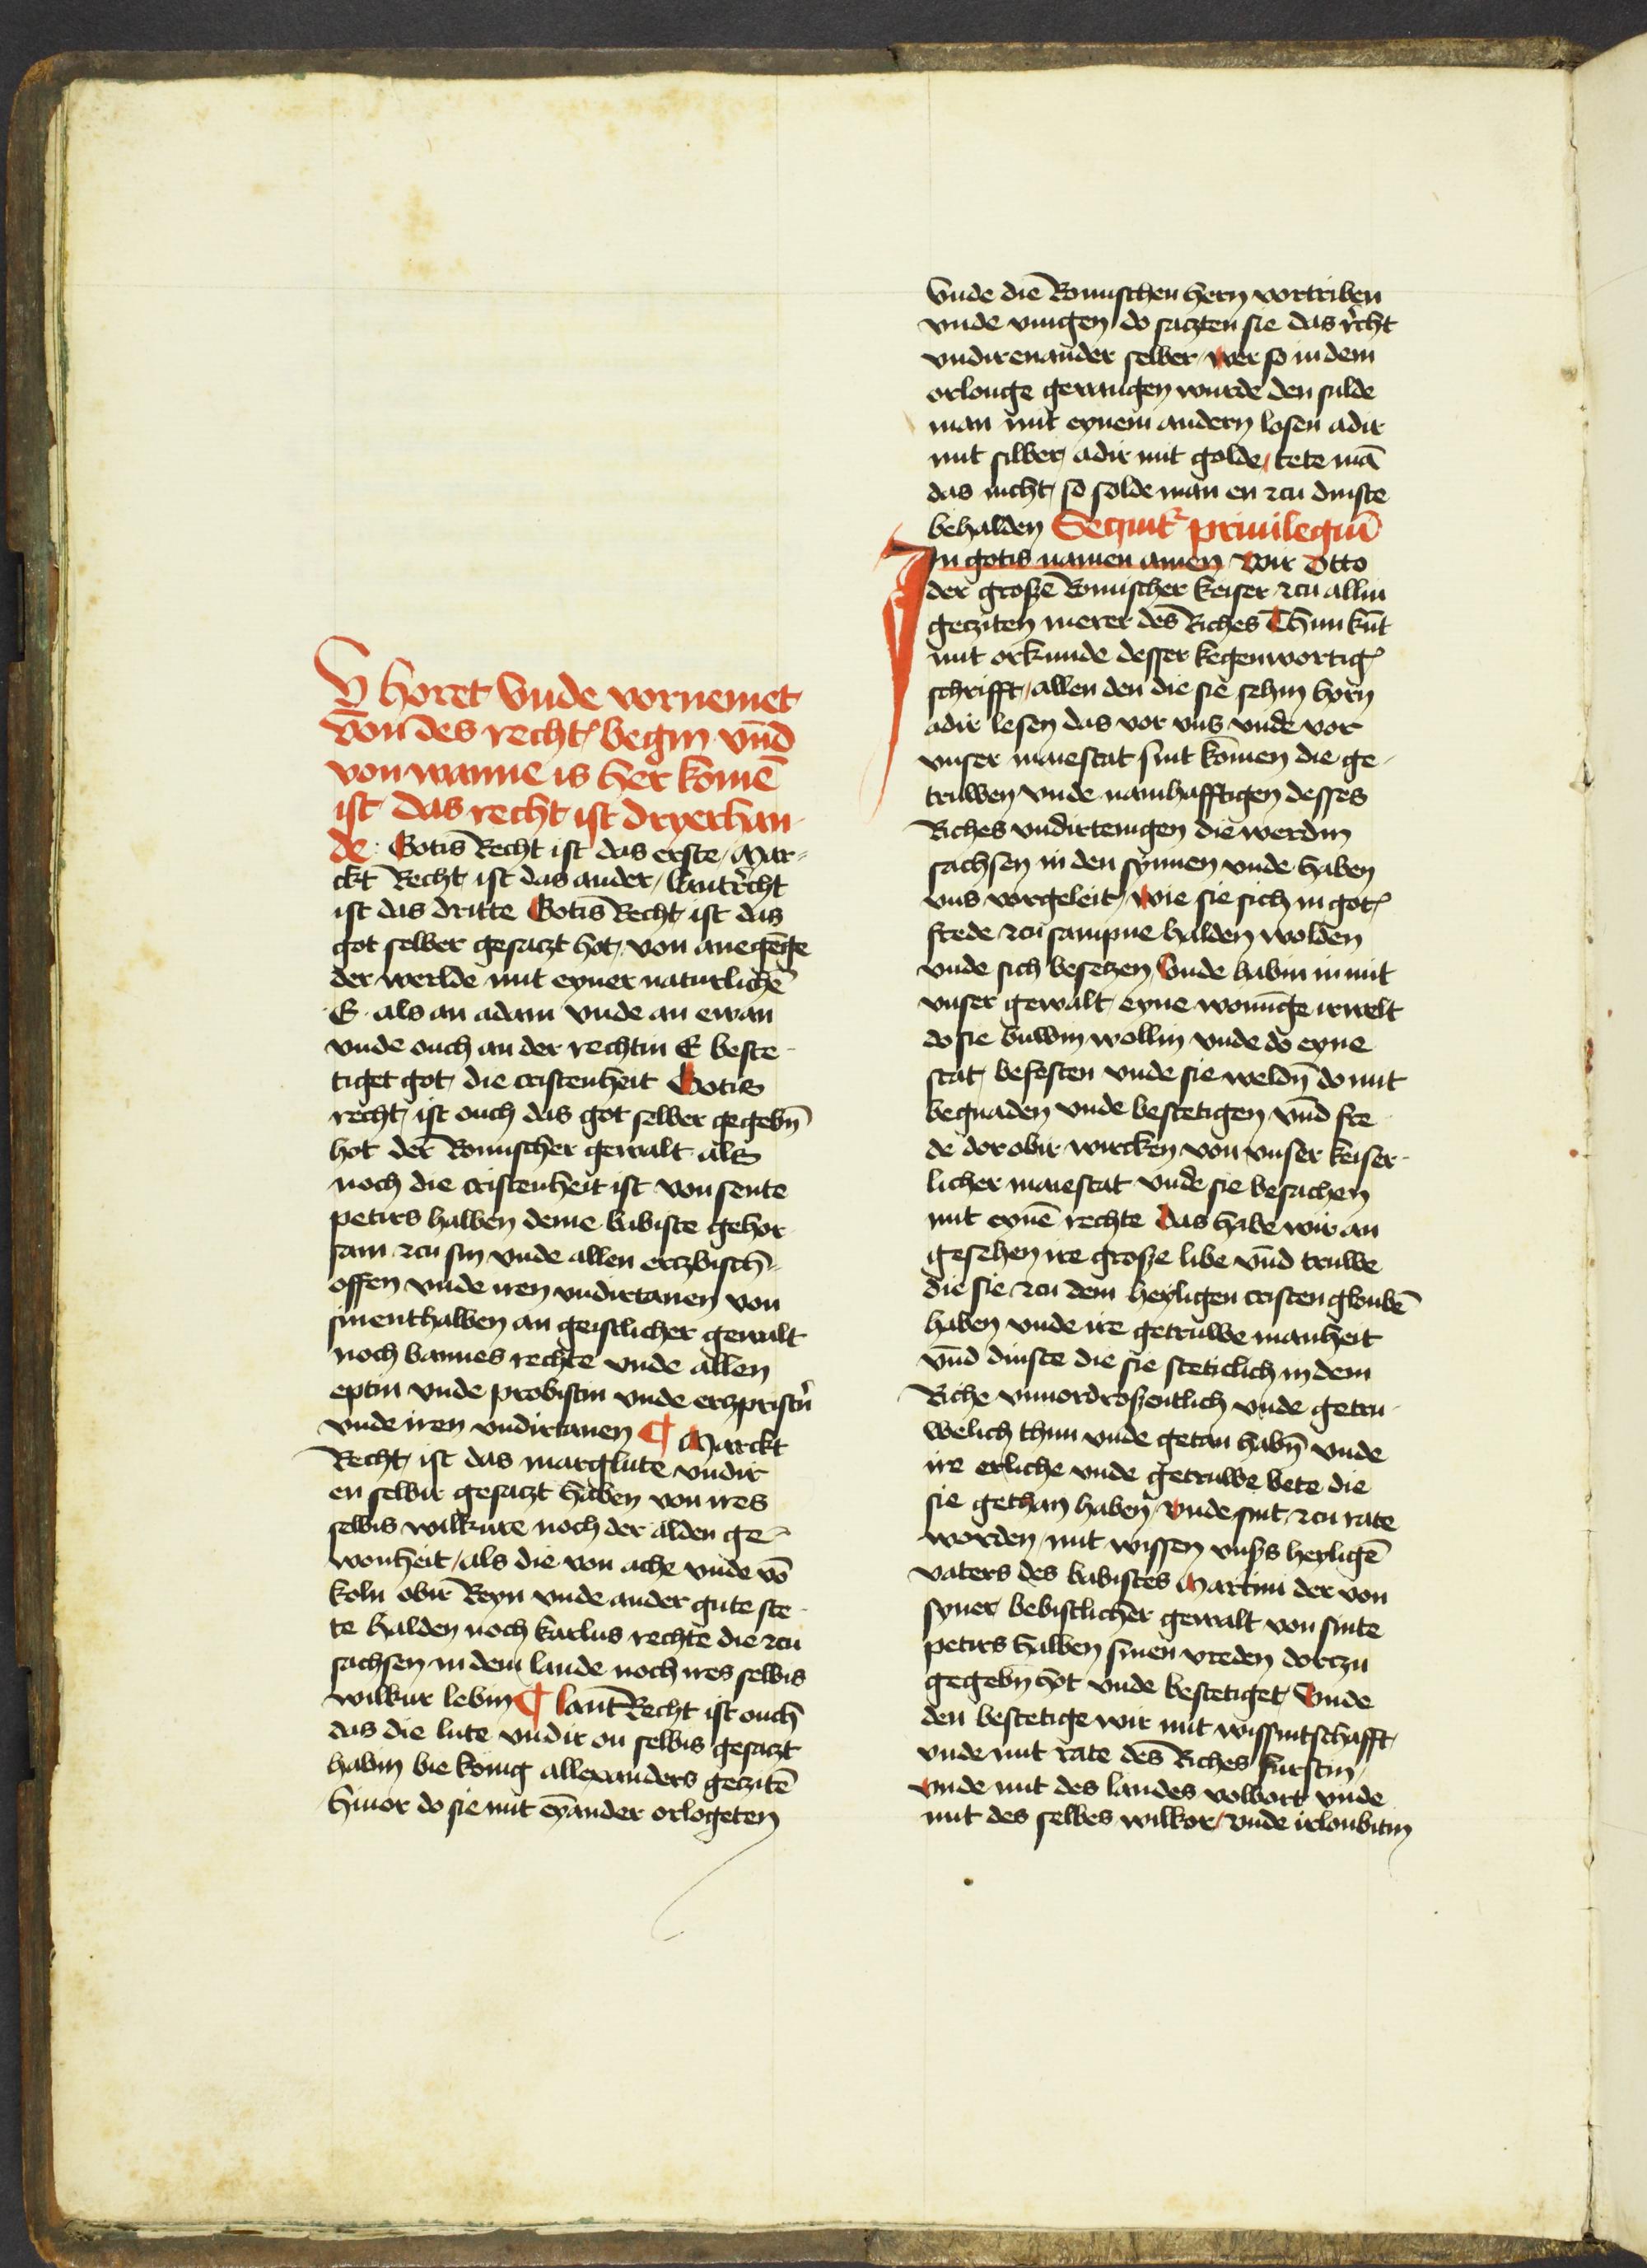 Hy horet Vnde vornemet
von des recht begin vnd
von wanne is her komē
ist das recht ist dryerhan
de · Gotis Recht ist das erste / Mar⸗
ckt Recht ist das ander / lantrecht
ist das dritte Gotis Recht ist das
got selber gesaczt hot / von anegēge
der werlde mit eyner naturlichē
E · als an adam vnde an ewan
vnde ouch an der rechtin E beste
tiget got die cristenheit Gotis
recht / ist ouch das got selber gegebn̄
hot der Romischer gewalt als
noch die cristenheit ist von sente
petirs halben deme babiste gehor
sam czu sin vnde allen erczbisch⸗
offen vnde iren vndirtanen von
sinenthalben an geistlicher gewalt
noch bannes rechte vnde allen
eptin vnde probistin vnde erczpristn̄
vnde iren vndirtanen ¶ Marckt
Recht / ist das marglute vndir
en selbir gesaczt haben von ires
selbis wilkure noch der alden ge⸗
wonheit / als die von ache vnde vō
koln obir Reyn vnde ander gute ste
te halden noch karlus rechte die czu
sachsen in dem lande noch ires selbis
wilkur lebin ¶ lant Recht ist ouch
das die lute vndir on selbis gesaczt
habin bie konig allexanders geczitē
hiuor do sie mit eȳander orlogeten
Vnde die Romischen hern vortriben
vnde vingen do saczten sie das recht
vndirenander selber / wer so in dem
orlouge gevangen wurde den sulde
man mit eynem andern losen adir
mit silber / adir mit golde / tete mā
das nicht / so solde man en czu dinste
behalden Sequit² priuilegiū
In gotis namen amen / Wir Otto
der große Romischer keiser / czu allin
gecziten merer des Riches Thun kūt
mit orkunde desser kegenwortig
schrifft / allen den die sie sehin horn
adir lesen das vor vns vnde vor
vnser maiestat sint komen die ge
truwen vnde namhafftigen desses
Riches vndirtenigen die werdin
sachsen in den synnen vnde haben
vns vorgeleit / wie sie sich in got
frede czu sampne halden wolden
vnde sich beseczen / Vnde habin in mit
vnser gewalt eyne wonūge irwelt
do sie buwin wollin vnde do eyne
stat befesten vnde sie weldn̄ do mit
begnaden vnde bestetigen vnd fre
de dor obir wircken von vnser keiser
licher maiestat vnde sie besachen
mit eynē rechte Das habe wir an
gesehen ire große libe vnd truwe
die sie czu dem heyligen cristen gloubē
haben vnde ire getruwe manheit
vnd dinste die sie steticlich in dem
Riche vnuordroßentlich vnde getru
welich thun vnde getan habn̄ vnde
ire erliche vnde getruwe bete die
sie gethan haben / Vnde sint / czu rate
worden / mit wissen vnsers heyligē
vaters des babistes Martini der von
syner bebistlicher gewalt von sinte
petirs halben sinen vreden dorczu
gegebn̄ hot vnde bestetiget / Vnde
den bestetige wir mit wissintschafft /
vnde mit rate des Riches furstin /
Vnde mit des landes volbort vnde
mit des selbes wilkor / vnde irloubitin